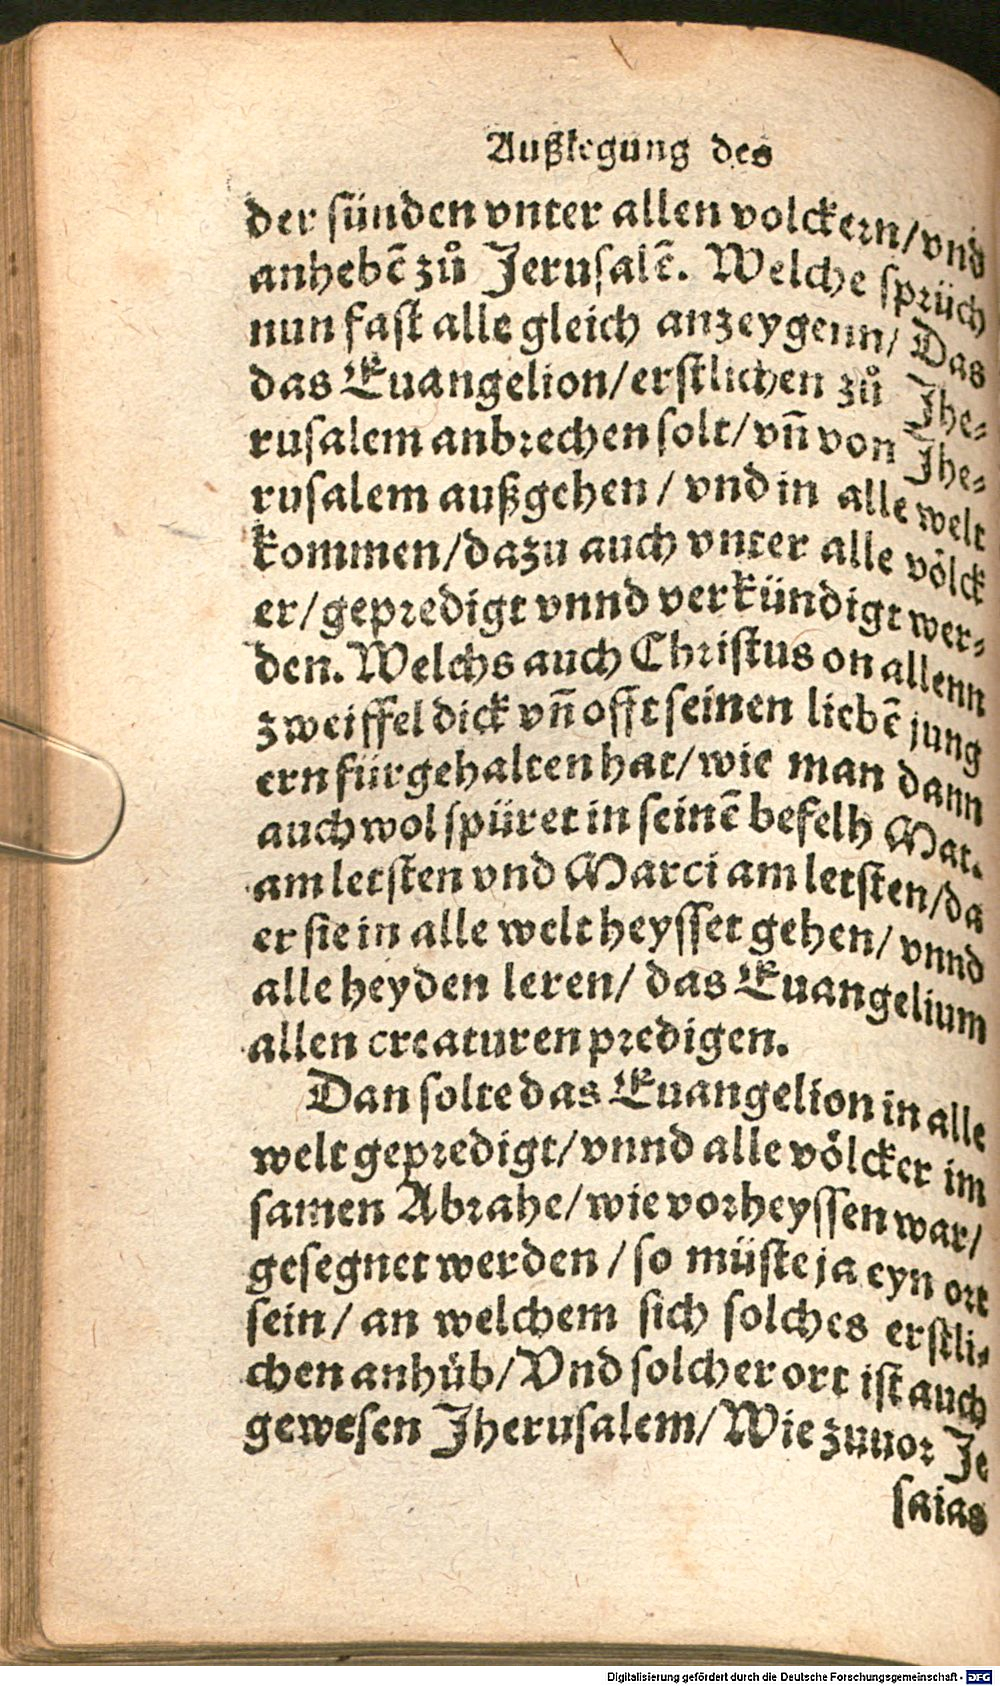 Außlegung des
der sünden vnter allen volckern/vnd
anhebẽ zů Jerusalẽ. Welche sprüch
nun fast alle gleich anzeygenn/ Das
das Euangelion/erstlichen zů Jhe-
rusalem anbrechen solt/vñ von Jhe-
rusalem außgehen/ vnd in alle welt
kommen/dazu auch vnter alle völck
er/gepredigt vnnd verkündigt wer-
den. Welchs auch Christus on allenn
zweiffel dick vñ offt seinen liebẽ jung
ern fürgehalten hat/wie man dann
auch wol spüret in seinẽ befelh Mat.
am letsten vnd Marci am letsten/da
er sie in alle welt heysset gehen/ vnnd
alle heyden leren/ das Euangelium
allen creaturen predigen.
Dan solte das Euangelion in alle
welt gepredigt/vnnd alle völcker im
samen Abrahe/wie vorheyssen war/
gesegnet werden/so müste ja eyn ort
sein/ an welchem sich solches erstli-
chen anhüb/Vnd solcher ort ist auch
gewesen Jherusalem/Wie zuuor Je
saias
Digitalisierung gefördert durch die Deutsche Forschungsgemeinschaft - DFG